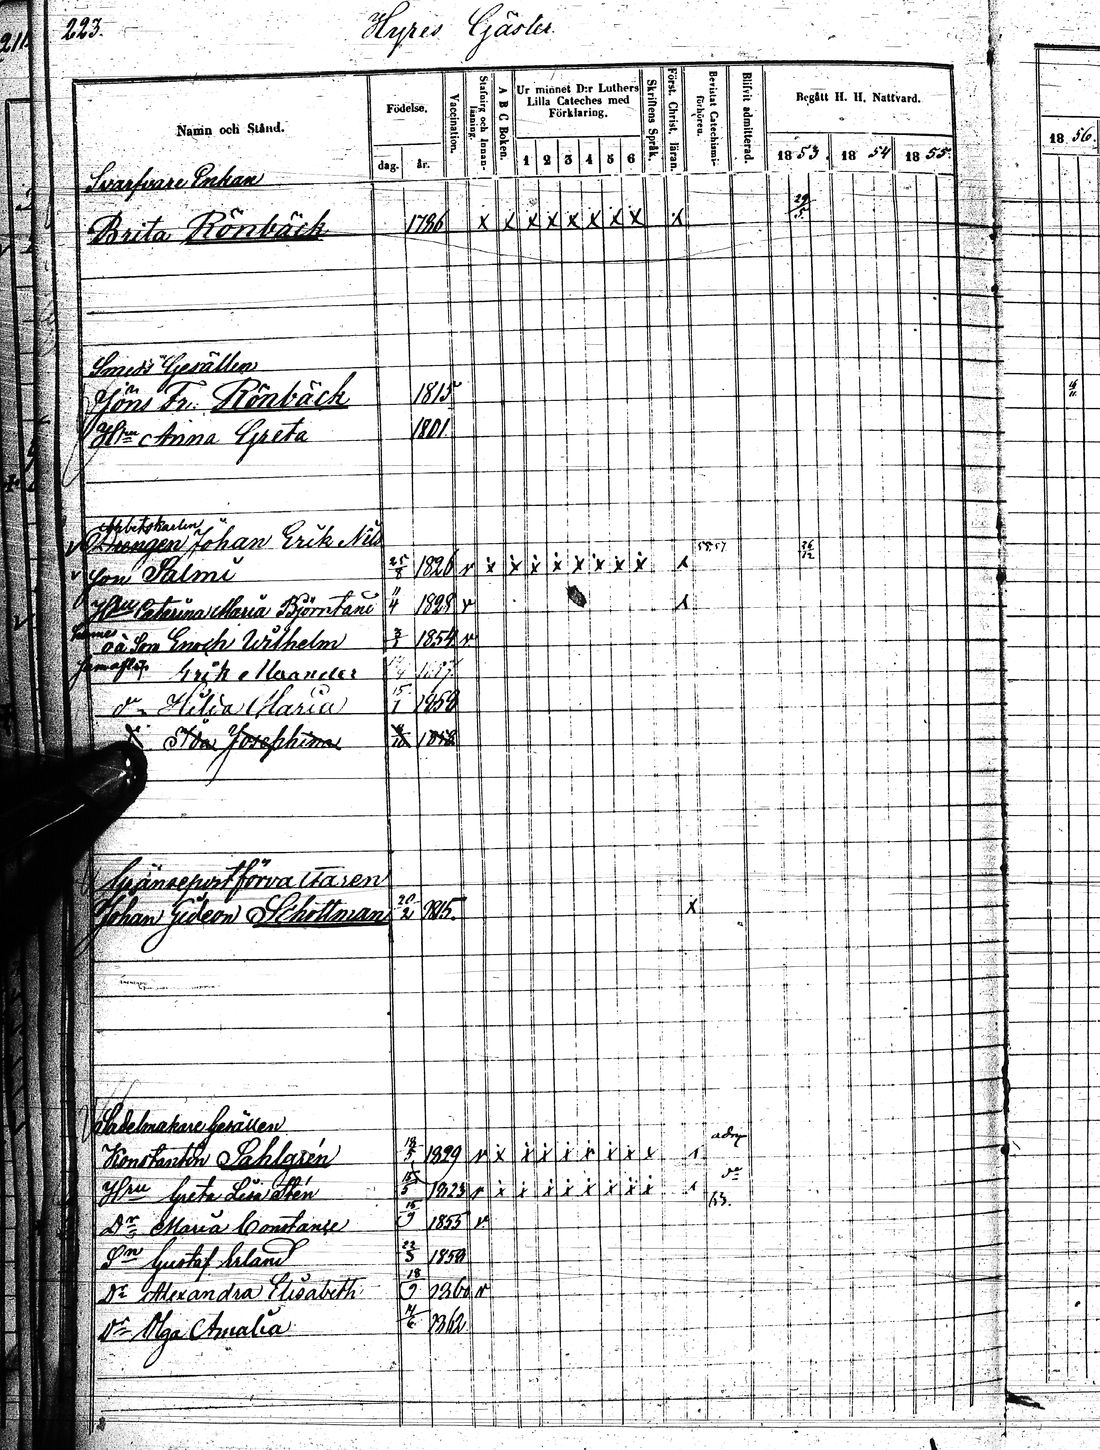 211
223.
Hyres Gäster.
Namn och Stånd.
Födelse.
dag. år.
Vaccination.
Stafning och Innanläsning.
A B C Boken.
Ur minnet D:r Luthers Lilla Cateches med Förklaring.
1 2 3 4 5 6
Skriftens Språk.
Först. Christ. läran.
Bevistat Catechismiförhören.
Blifvit admitterad.
Begått H. H. Nattvard.
1853. 1854 1855.
1856.
Svarfvare Enkan
Brita Rönbäck 1786 x x x x x x x x x 29/5
Smeds Gesällen
Jöns Fr. Rönbäck 1815
Hru Anna Greta 1801
Arbetskarlen
Drengen Johan Erik Nils
son Salmi 25/8 1826 v x x x x x x x x x 26/12
Hru Catarina Maria Björntani 11/4 1828 v x
oä Son Enoch Wilhelm 1854 v
Erik Alexander
Dr Hilia Maria 15/1 1858
Ida Josephina
Gränseportförvaltaren
Johan Gideon Schottman 20/2 1815. x
Sadelmakare Gesällen
Konstantin Sahlgrén 18/5 1829 v x x x x x x x x
Hru Greta Lisa Stén 1823 v x x x x x x x x
Dr Maria Constance 15/9 1855 v
Sn Gustaf Erland 22/3 1859
Dr Alexandra Elisabeth 18/9 1860 v
Dr Olga Amalia 1862